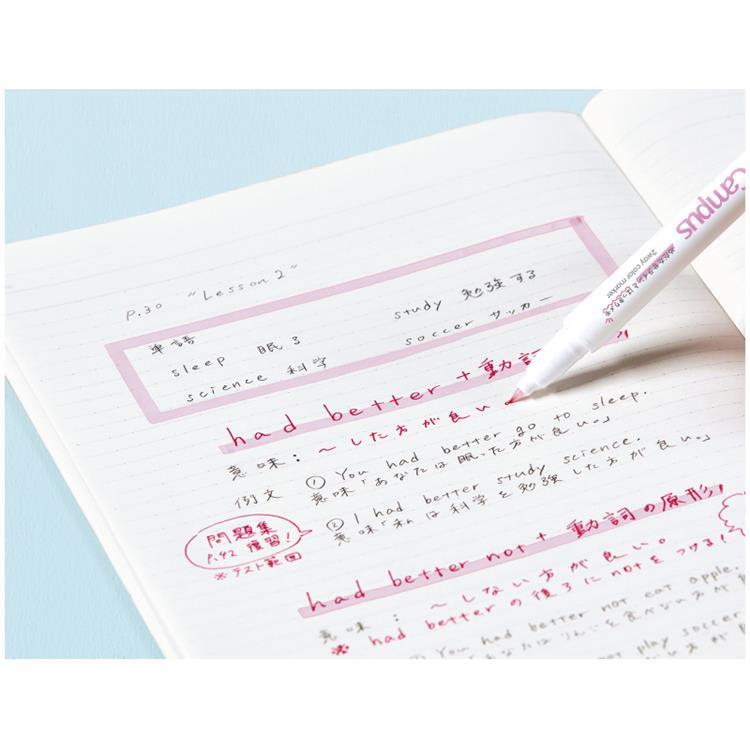 P.30 "Lesson 2"
単語
sleep 眠る
science 科学
study 勉強する
soccer サッカー
had better + 動詞
意味：〜した方が良い
例文 ① You had better go to sleep.
意味「あなたは眠った方が良い。」
② I had better study science.
意味「私は科学を勉強した方が良い。」
問題集
P.42 復習！
※テスト範囲
had better not + 動詞の原形！
意味：〜しない方が良い。
※ had better の後ろに not をつける！
You had better not eat apple.
not play soccer
Campus
2way color marker